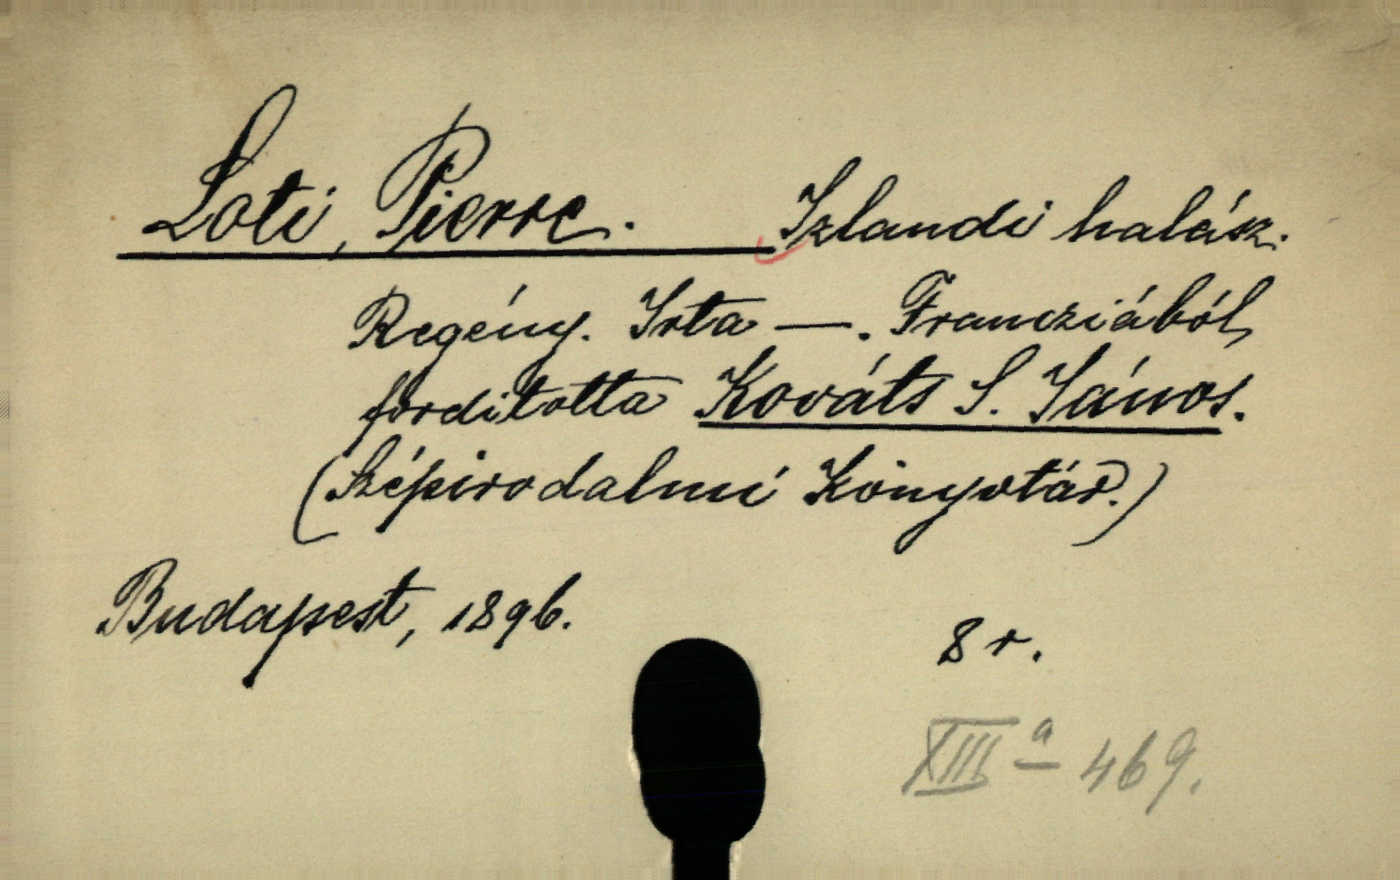 Loti, Pierre. Izlandi halász.
Regény. Irta —. Francziából
fordította Kováts S. János.
(Szépirodalmi Könyvtár.)
Budapest, 1896.
8 r.
XIII a 469.